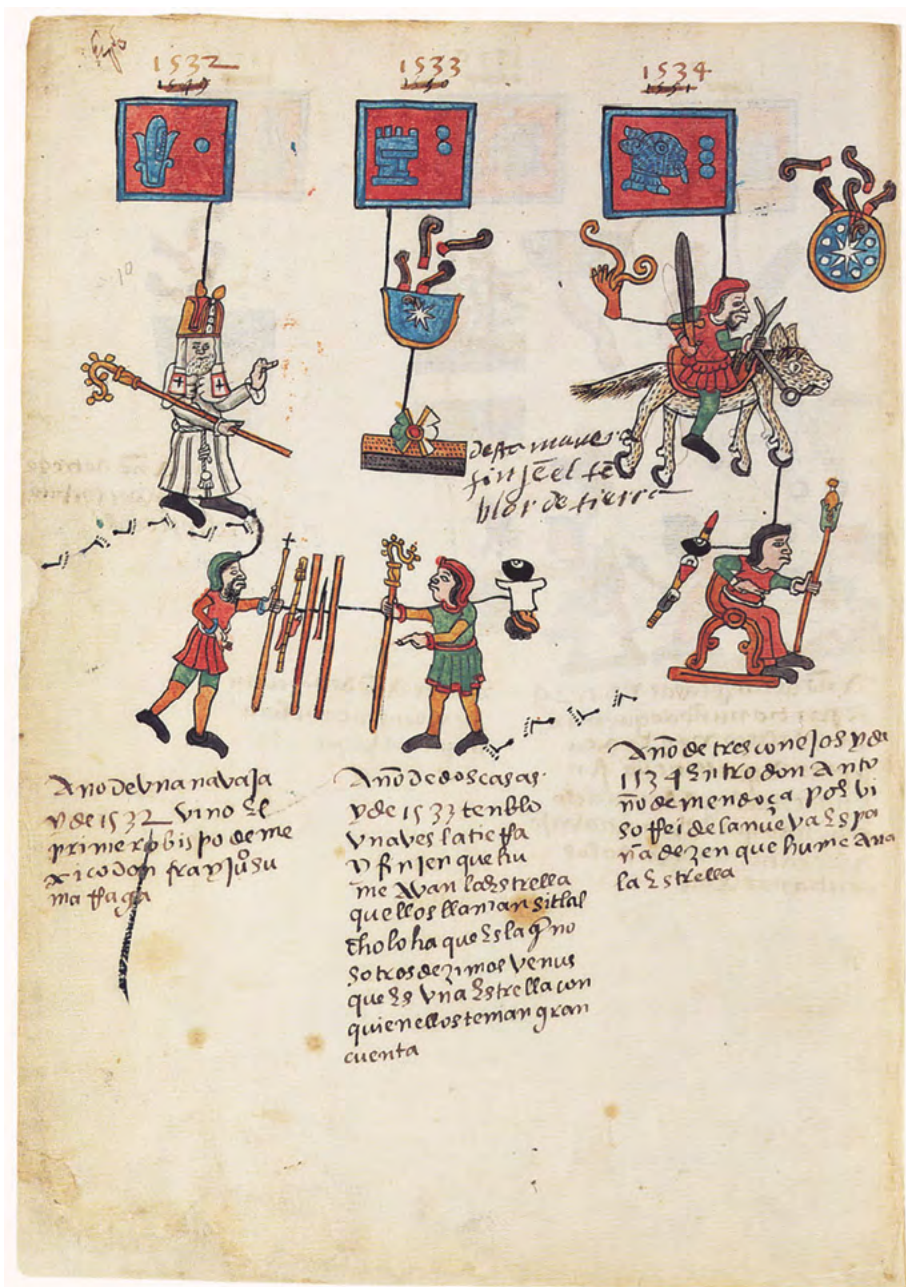 1532
1533
1534
desta manera
finjē el tē
blor de tierra
Año de una navaja
y de 1532 vino el
primer obispo de me
xico don fray juº su
marraga
Año de dos casas
y de 1533 tenblo
una ves la tierra
y finjen que hu
meavan la estrella
quellos llaman sitlal
choloha que es la q̄ no
sotros dezimos venus
que es una estrella con
quien ellos tenian gran
cuenta
Año de tres conejos y de
1534 entro don anto
ño de mendoça por vi
so rrei de la nueva espa
ña dezen que humeava
la estrella